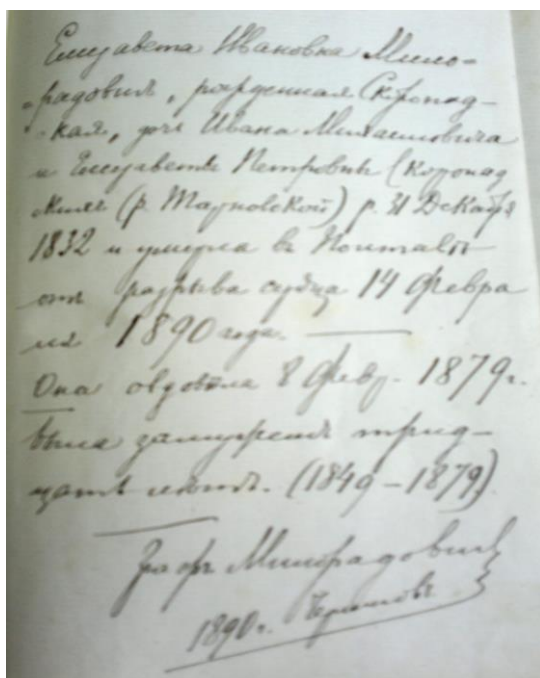 Елизавета Ивановна Мило-
радовичъ, рожденная Скоропад-
ская, дочь Ивана Михайловича
и Елизаветы Петровны Скоропад
скихъ (р. Тарновской) р. 31 Декабря
1832 и умерла въ
отъ разрыва сердца 14 февра
ля 1890 года.
Она овдовѣла 8 февр. 1879 г.
была замужемъ трид-
цать лѣтъ. (1849-1879)
Графъ Милорадовичъ
1890 г. Черниговъ